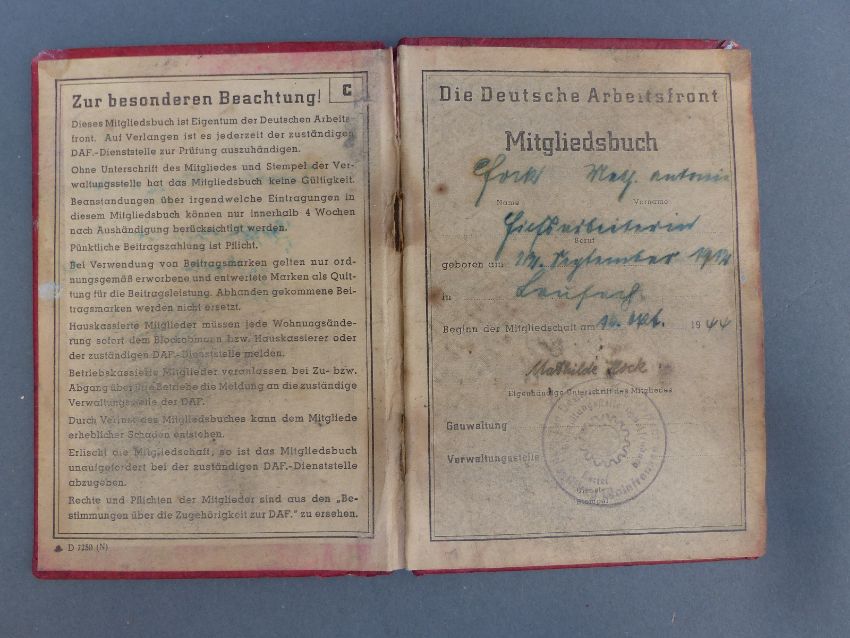 Zur besonderen Beachtung!
C
Dieses Mitgliedsbuch ist Eigentum der Deutschen Arbeits-
front. Auf Verlangen ist es jederzeit der zuständigen
DAF.-Dienststelle zur Prüfung auszuhändigen.
Ohne Unterschrift des Mitgliedes und Stempel der Ver-
waltungsstelle hat das Mitgliedsbuch keine Gültigkeit.
Beanstandungen über irgendwelche Eintragungen in
diesem Mitgliedsbuch können nur innerhalb 4 Wochen
nach Aushändigung berücksichtigt werden.
Pünktliche Beitragszahlung ist Pflicht.
Bei Verwendung von Beitragsmarken gelten nur ord-
nungsgemäß erworbene und entwertete Marken als Quit-
tung für die Beitragsleistung. Abhanden gekommene Bei-
tragsmarken werden nicht ersetzt.
Hauskassierte Mitglieder müssen jede Wohnungsände-
rung sofort dem Blockobmann bzw. Hauskassierer oder
der zuständigen DAF.-Dienststelle melden.
Betriebskassierte Mitglieder veranlassen bei Zu- bzw.
Abgang über ihre Betriebe die Meldung an die zuständige
Verwaltungsstelle der DAF.
Durch Verlust des Mitgliedsbuches kann dem Mitgliede
erheblicher Schaden entstehen.
Erlischt die Mitgliedschaft, so ist das Mitgliedsbuch
unaufgefordert bei der zuständigen DAF.-Dienststelle
abzugeben.
Rechte und Pflichten der Mitglieder sind aus den „Be-
stimmungen über die Zugehörigkeit zur DAF." zu ersehen.
D 7250 (N)
Die Deutsche Arbeitsfront
Mitgliedsbuch
Name Vorname
Beruf
geboren am 12. September
in Laufach
Beginn der Mitgliedschaft am 1944
Mathilde
Eigenhändige Unterschrift des Mitgliedes
Gauwaltung
Verwaltungsstelle
Dienst-
Stempel
Mainfranken